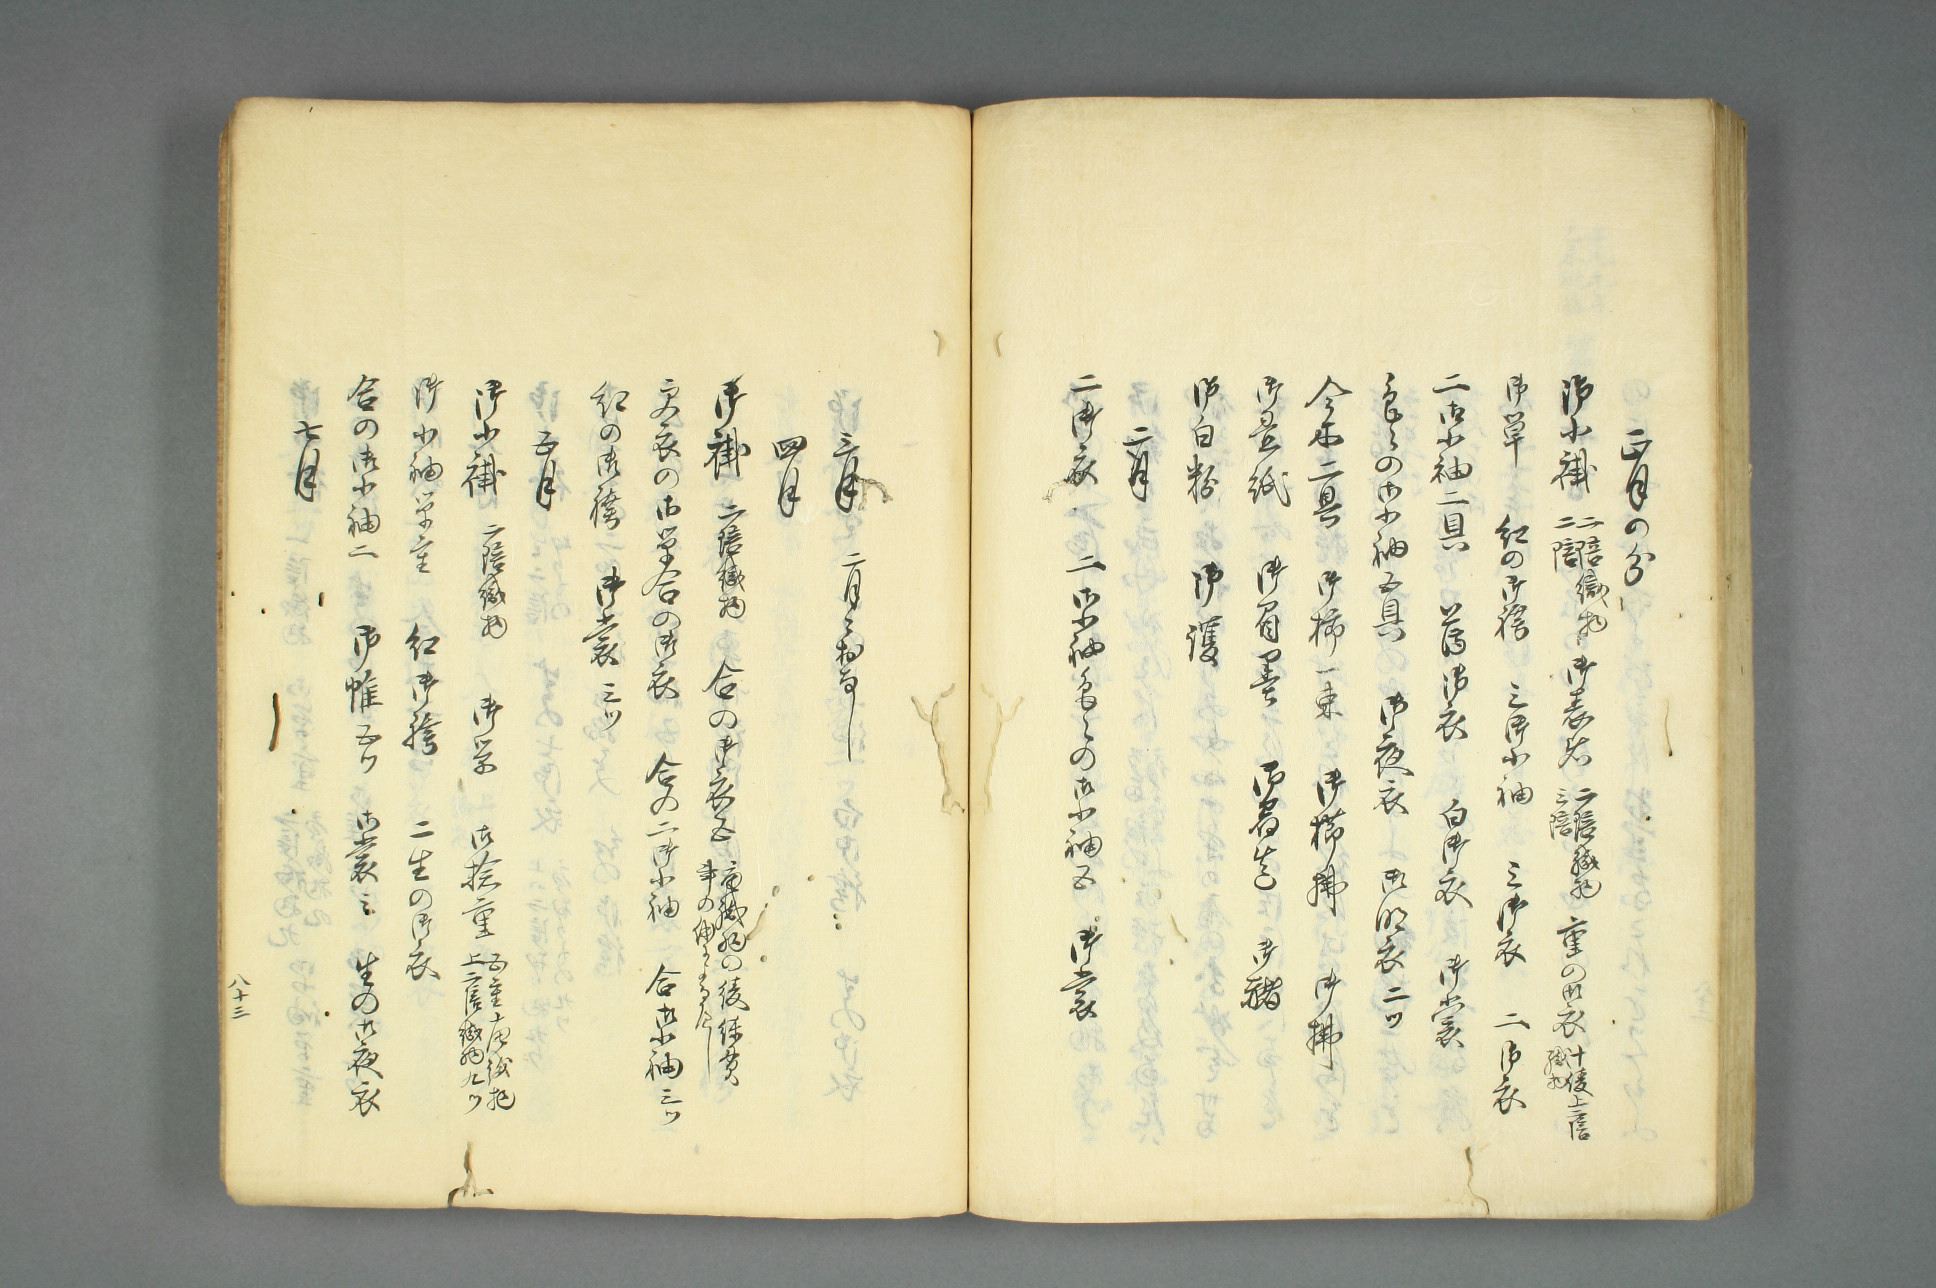 正月の分
御小褂 二陪織物 二陪 御表着 二陪織物 三陪 重の御衣 十綾上二陪 織物
御単 紅の御袴 三御小袖 三御衣 二御衣
二御小袖二具 薄御衣 白御衣 御裳
色々の御小袖五具 御夜衣 御明衣二ツ
今木二具 御帯一束 御櫛拂 御拂
御畳紙 御眉墨 御 御
御白粉 御護
二月
二御衣 二御小袖色々の御小袖五 御裳
三月 二月と替なし
四月
御褂 二陪織物 合の御衣五 織物の綾練貫
更衣の御単合の御衣 合の二御小袖 合御小袖三ツ
紅の御袴 御裳三ツ
五月
御小褂 二陪織物 御単 御捻重 五重 織物 上二陪織物九ツ
御小袖単重 紅御袴 二生の御衣
合の御小袖二 御帷五ツ 御裳三 生の御夜衣
七月
八十三